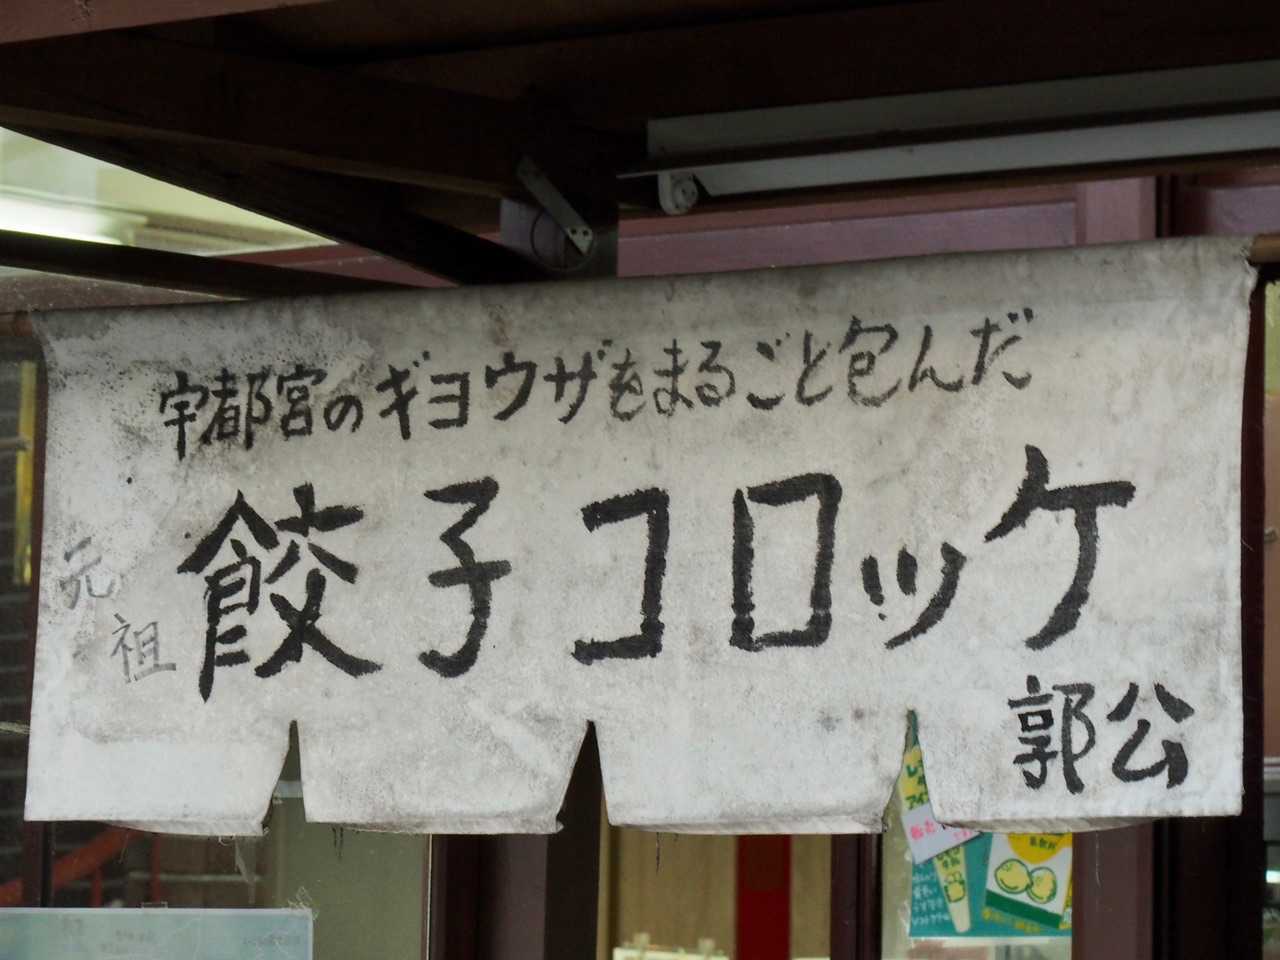 宇都宮のギョウザをまるごと包んだ
元祖
餃子コロッケ
郭公